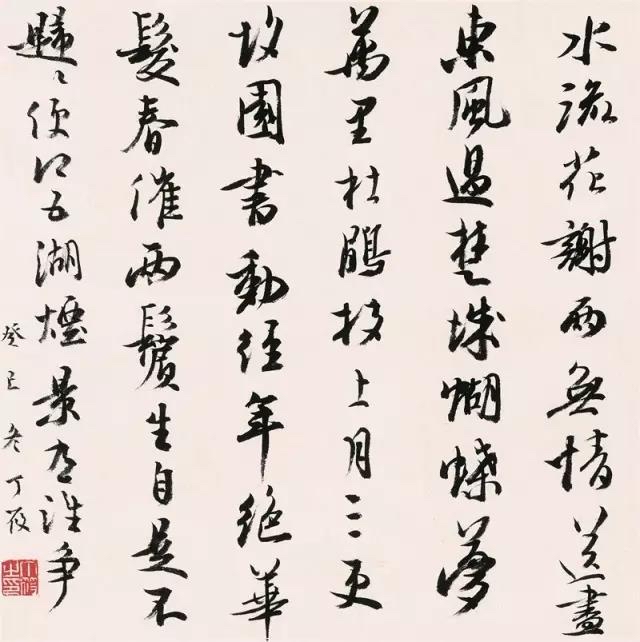 水流花謝兩無情送盡
東風過楚城蝴蝶夢
萬里杜鵑枝上月三更
故園書動經年絕華
髮春催兩鬢生自是不
歸〻便得五湖煙景有誰爭
癸巳冬丁筱